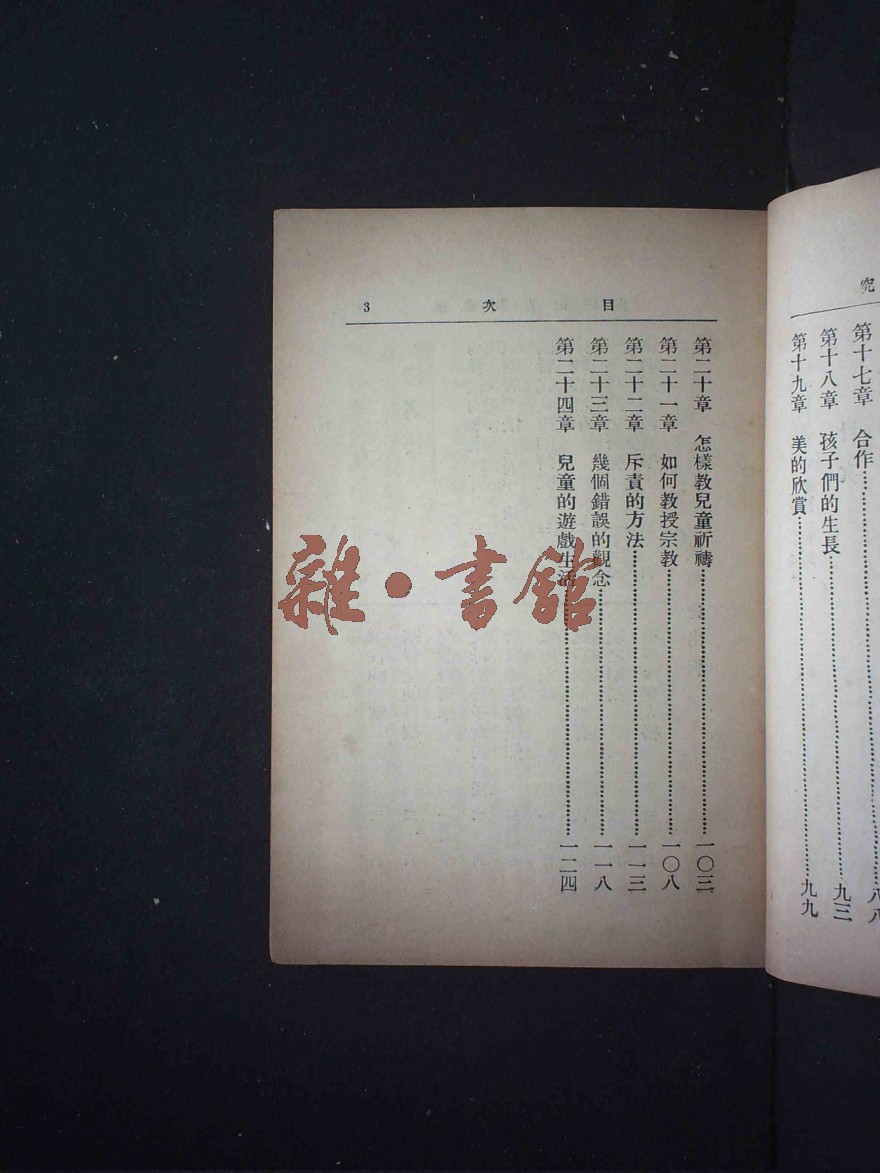 究
第十七章 合作……八八
第十八章 孩子們的生長……九三
第十九章 美的欣賞……九九
目次 3
第二十章 怎樣教兒童祈禱……一〇三
第二十一章 如何教授宗教……一〇八
第二十二章 斥責的方法……一一三
第二十三章 幾個錯誤的觀念……一一八
第二十四章 兒童的遊戲生活……一二四
雜·書館